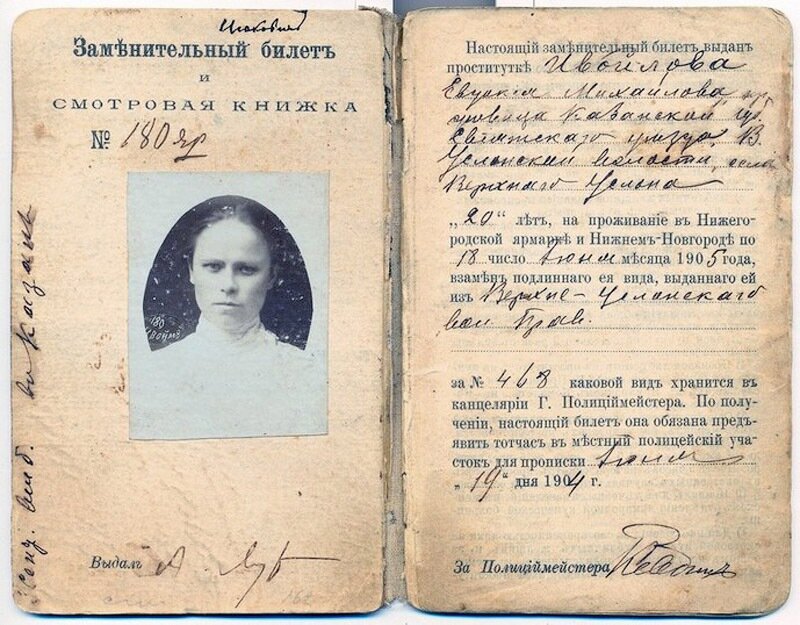 Замѣнительный билетъ
и
СМОТРОВАЯ КНИЖКА
№ 180 яр
180
Выдалъ
въ Казань
Настоящій замѣнительный билетъ выданъ
проституткѣ Ивойлова
Евдокія Михайлова кр
Казанской губ.
Свіяжскаго уѣзда, В.
Услонской волости, села
Верхняго Услона
„20“ лѣтъ, на проживаніе въ Нижего-
родской ярмаркѣ и Нижнемъ-Новгородѣ по
18 число Іюня мѣсяца 1905 года,
взамѣнъ подлиннаго ея вида, выданнаго ей
изъ Верхне-Услонскаго
вол. Прав.
за № 468 каковой видъ хранится въ
канцеляріи Г. Полиціймейстера. По полу-
ченіи, настоящій билетъ она обязана предъ-
явить тотчасъ въ мѣстный полицейскій уча-
стокъ для прописки Іюня
„19“ дня 1904 г.
За Полиціймейстера